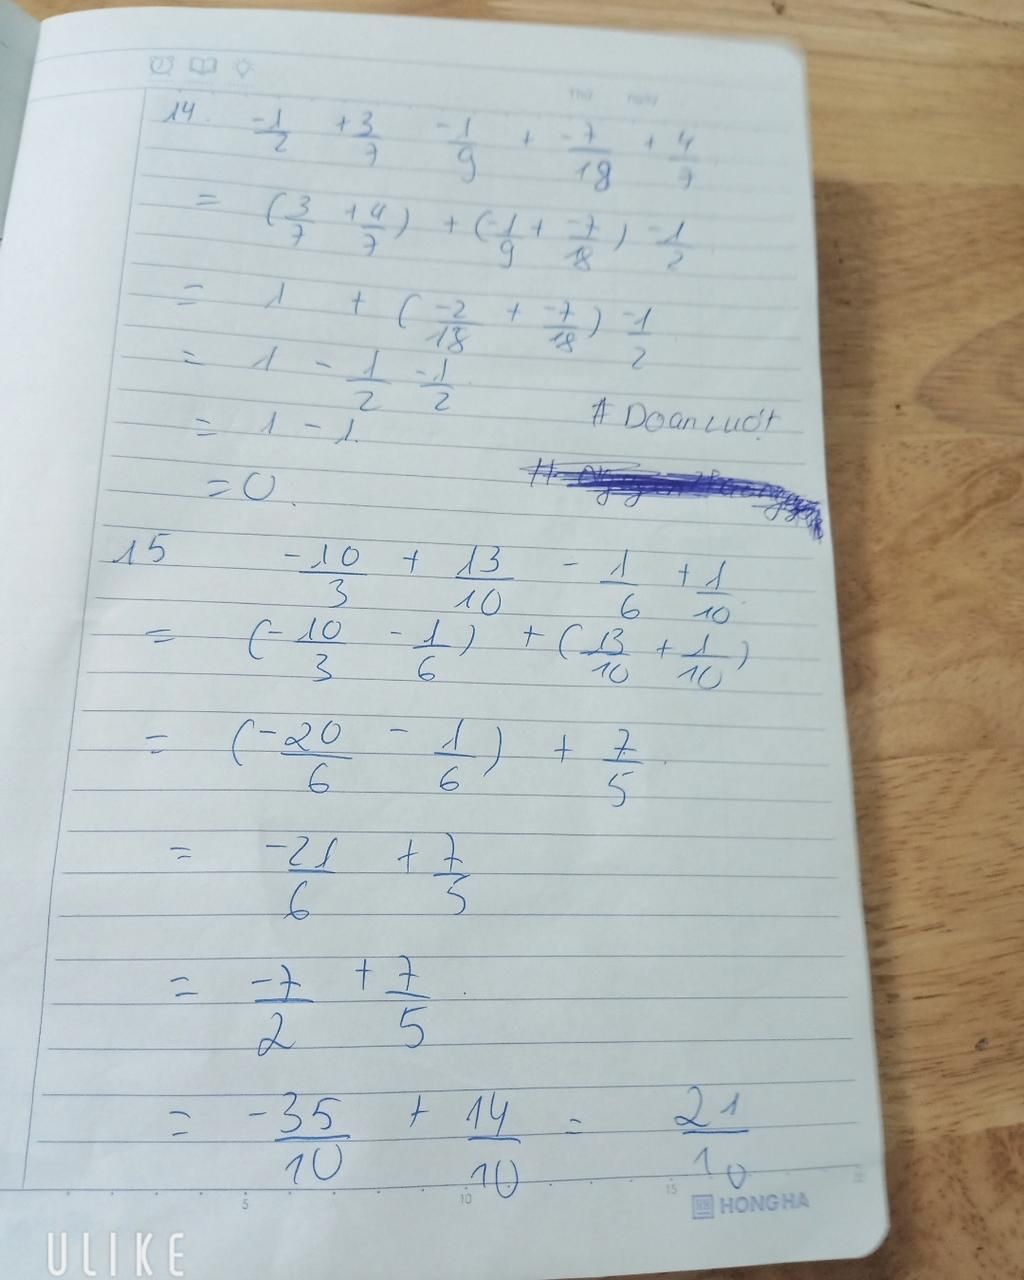 Thứ Ngày
14. -1/2 +3/7 -1/9 + -7/18 + 4/7
= (3/7 +4/7) + (-1/9 + -7/18) -1/2
= 1 + (-2/18 + -7/18) -1/2
= 1 - 1/2 -1/2
= 1 - 1.
# Doanluot
= 0.
15 -10/3 + 13/10 - 1/6 + 1/10
= (-10/3 - 1/6) + (13/10 + 1/10)
= (-20/6 - 1/6) + 7/5.
= -21/6 + 7/5
= -7/2 + 7/5.
= -35/10 + 14/10 = 21/10
5 10 15 20
HONG HA
ULIKE